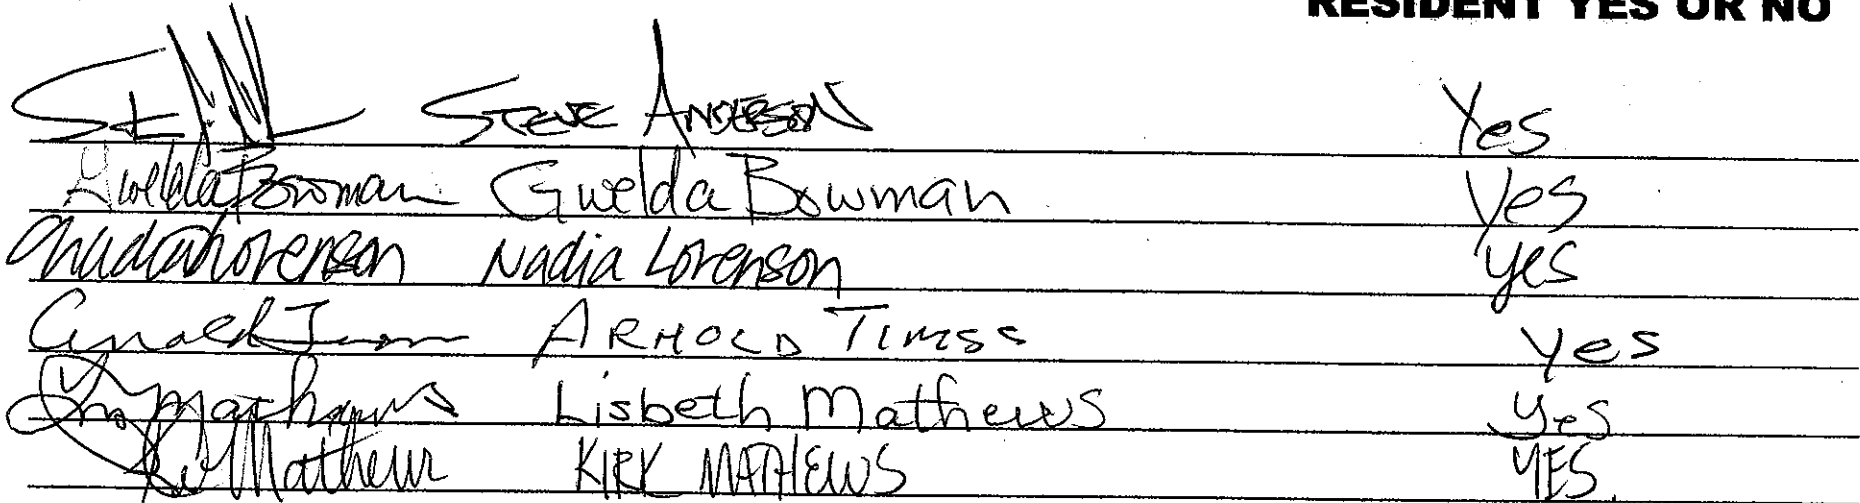 RESIDENT YES OR NO
STEVE ANDERSON Yes
Gwelda Bowman Gwelda Bowman Yes
Nadia Lorenson Nadia Lorenson yes
Arnold ARNOLD yes
Mathews Lisbeth Mathews yes
Mathews KIRK MATHEWS YES.